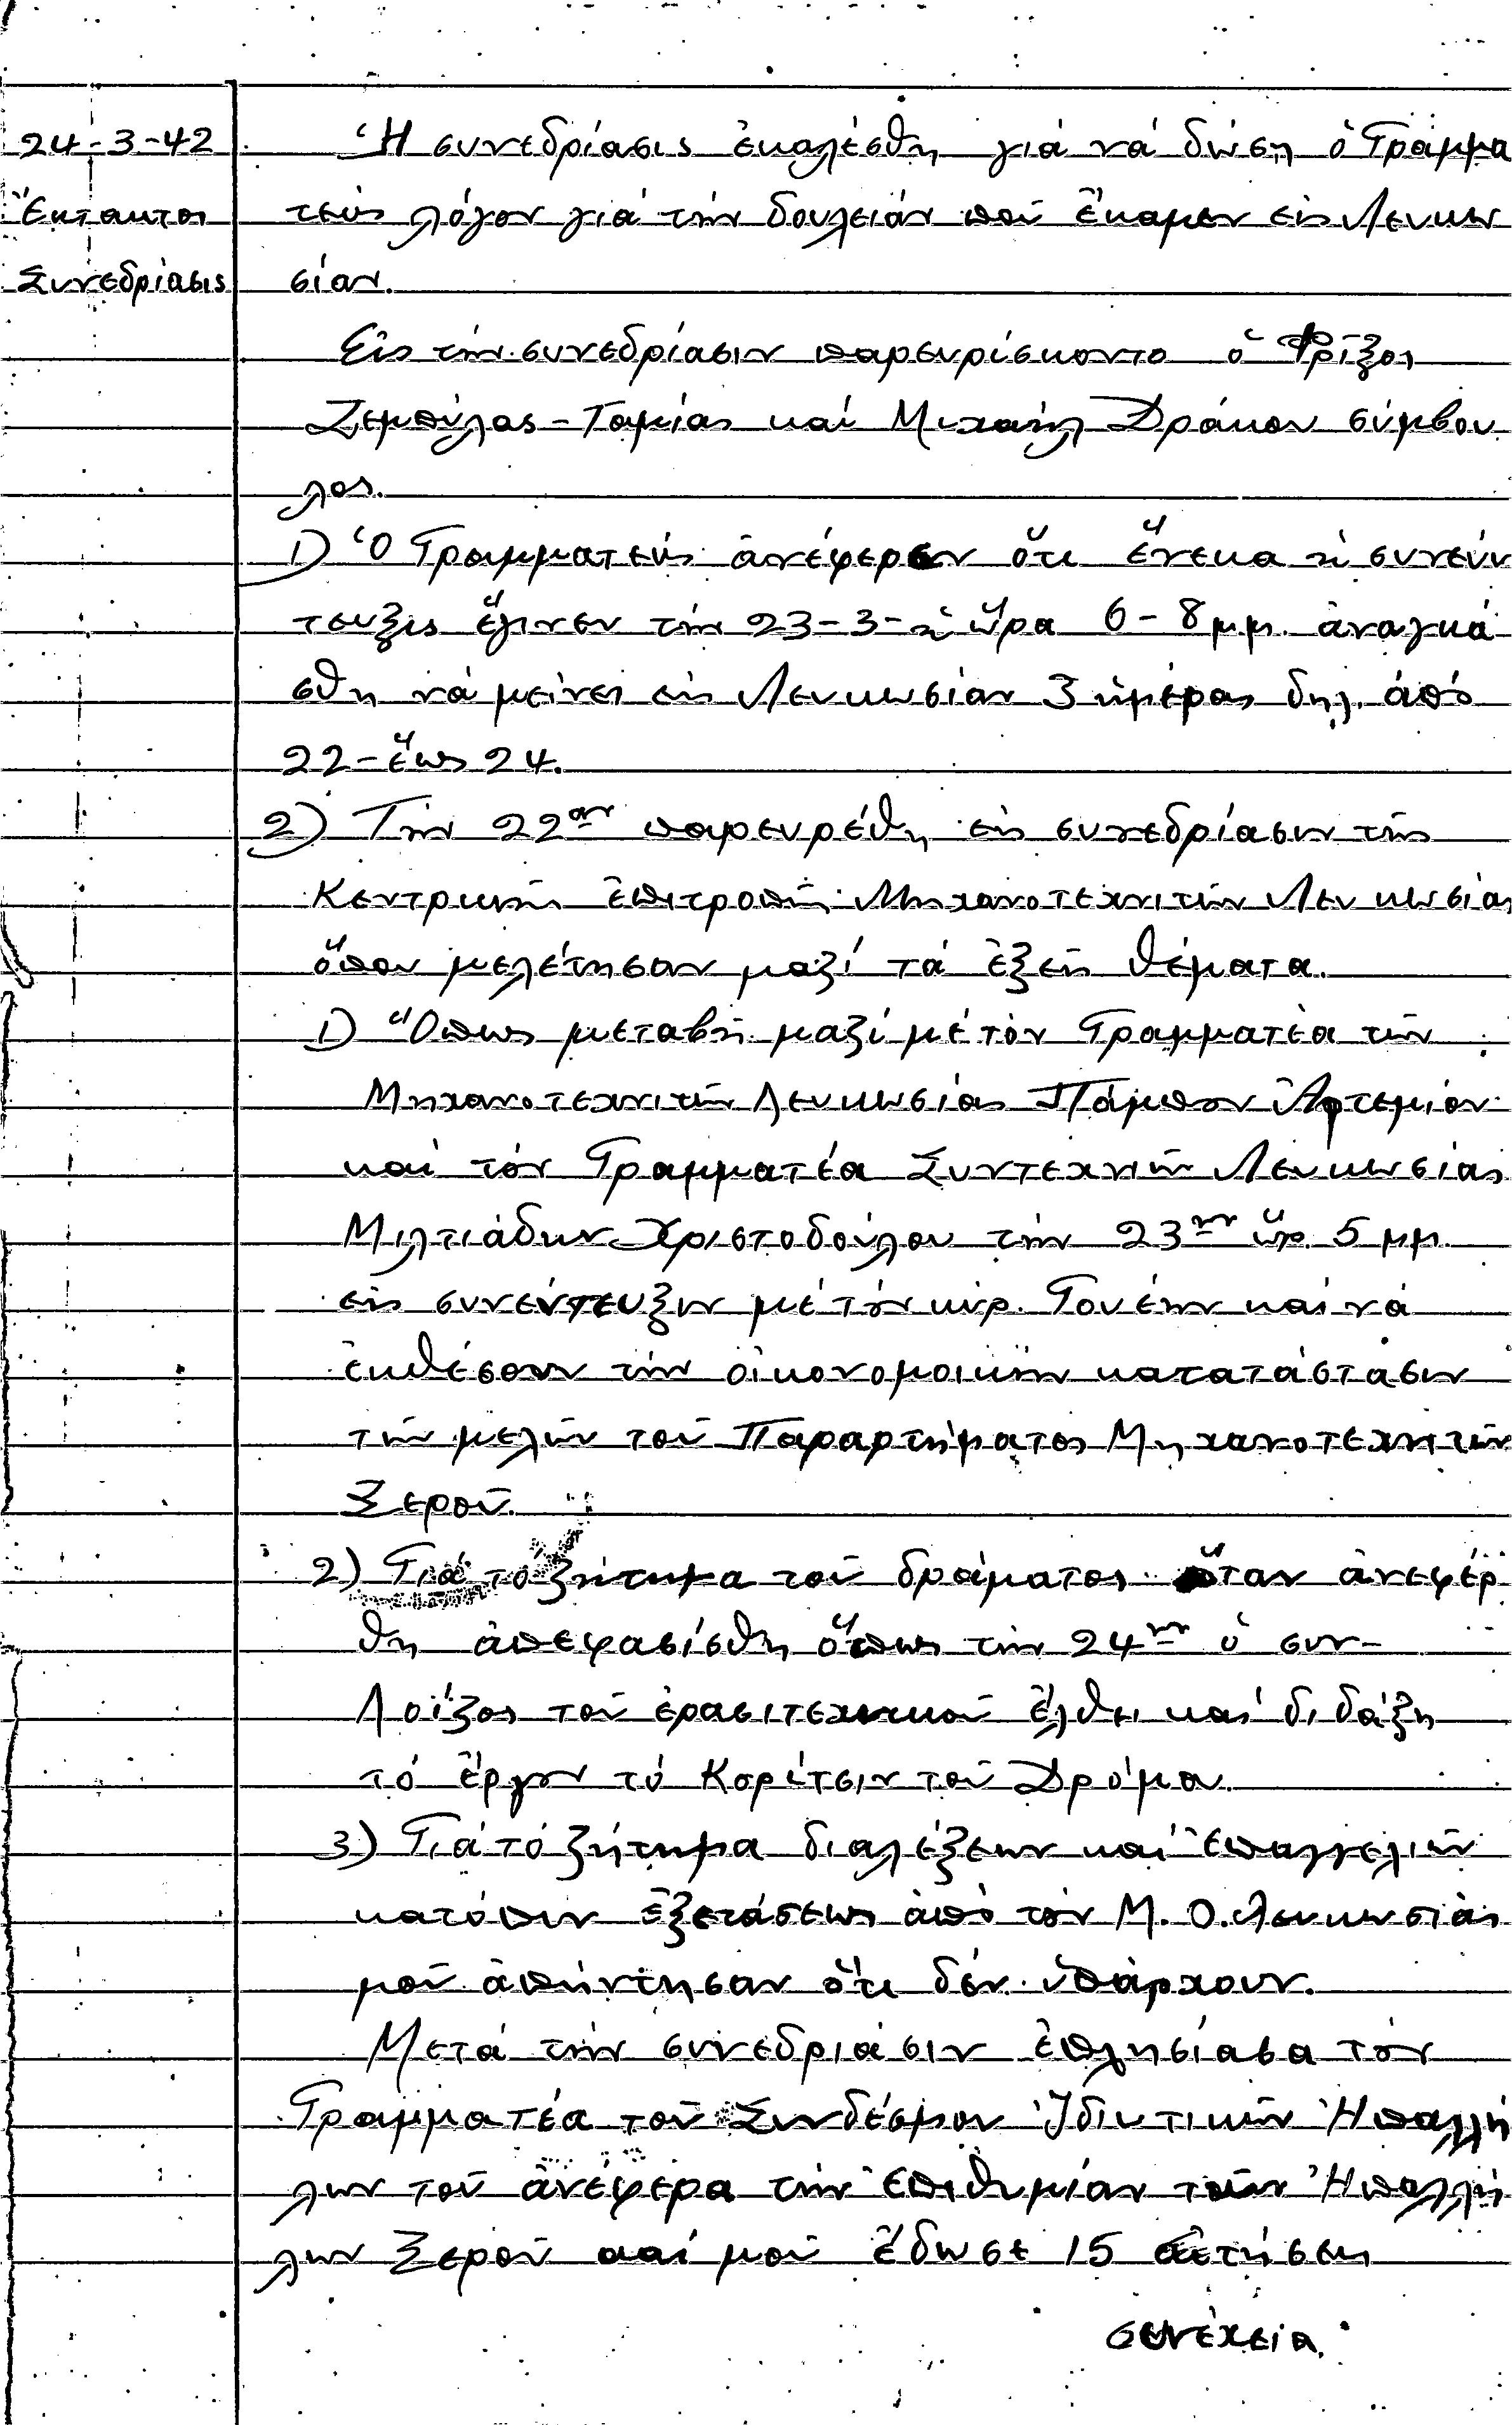 24-3-42
Ἔκτακτος
Συνεδρίασις
Ἡ συνεδρίασις ἐκαλέσθη γιά νά δώση ὁ Γραμμα
τεύς λόγον γιά τήν δουλειάν ποῦ ἔκαμεν εἰς Λευκω
σίαν.
Εἰς τήν συνεδρίασιν παρευρίσκοντο ὁ Φρῖξος
Ζεμπύλας - Ταμίας καί Μιχαήλ Δράκου σύμβου
λος.
1) Ὁ Γραμματεύς ἀνέφερεν ὅτι ἕνεκα ἡ συνεύν
τευξις ἔγινεν τήν 23-3- ἡ ὥρα 6-8 μμ. ἀναγκά
σθη νά μείνει εἰς Λευκωσίαν 3 ἡμέρας δηλ. ἀπό
22 - ἕως 24.
2) Τήν 22αν παρευρέθη εἰς συνεδρίασιν τῆς
Κεντρικῆς ἐπιτροπῆς Μηχανοτεχνιτῶν Λευκωσίας
ὅπου μελέτησαν μαζί τά ἐξεῖς θέματα.
1) Ὅπως μεταβῆ μαζί μέ τόν Γραμματέα τῶν
Μηχανοτεχνιτῶν Λευκωσίας Πάμπον Ἀρτεμίου
καί τόν Γραμματέα Συντεχνιῶν Λευκωσίας
Μιλτιάδην Χριστοδούλου τήν 23ην ὥρ. 5 μμ
εἰς συνέντευξιν μέ τόν κύρ. Γουέην καί νά
ἐκθέσουν τήν οἰκονομοικήν κατατάστασιν
τῶν μελῶν τοῦ Παραρτήματος Μηχανοτεχνιτῶν
Ξεροῦ.
2) Γιά τό ζήτημα τοῦ δράματος ὅταν ἀνεφέρ
θη ἀπεφασίσθη ὅπως τήν 24ην ὁ συν-
Λοΐζος τοῦ ἐρασιτεχνικοῦ ἔλθει καί διδάξη
τό ἔργον τό Κορίτσιν τοῦ Δρόμου.
3) Γιά τό ζήτημα διαλέξεων καί ἐπαγγελιῶν
κατόπιν ἐξετάσεως ἀπό τόν Μ. Ο. Λευκωσίας
μοῦ ἀπήντησαν ὅτι δέν ὑπάρχουν.
Μετά τήν συνεδρίασιν ἐπλησίασα τόν
Γραμματέα τοῦ Συνδέσμου Ἰδιωτικῶν Ἡπαλλή
λων τοῦ ἀνέφερα τήν ἐπιθυμίαν τῶν Ἡπαλλή
λων Ξεροῦ καί μοῦ ἔδωσε 15 αἰτήσεις
συνέχεια.